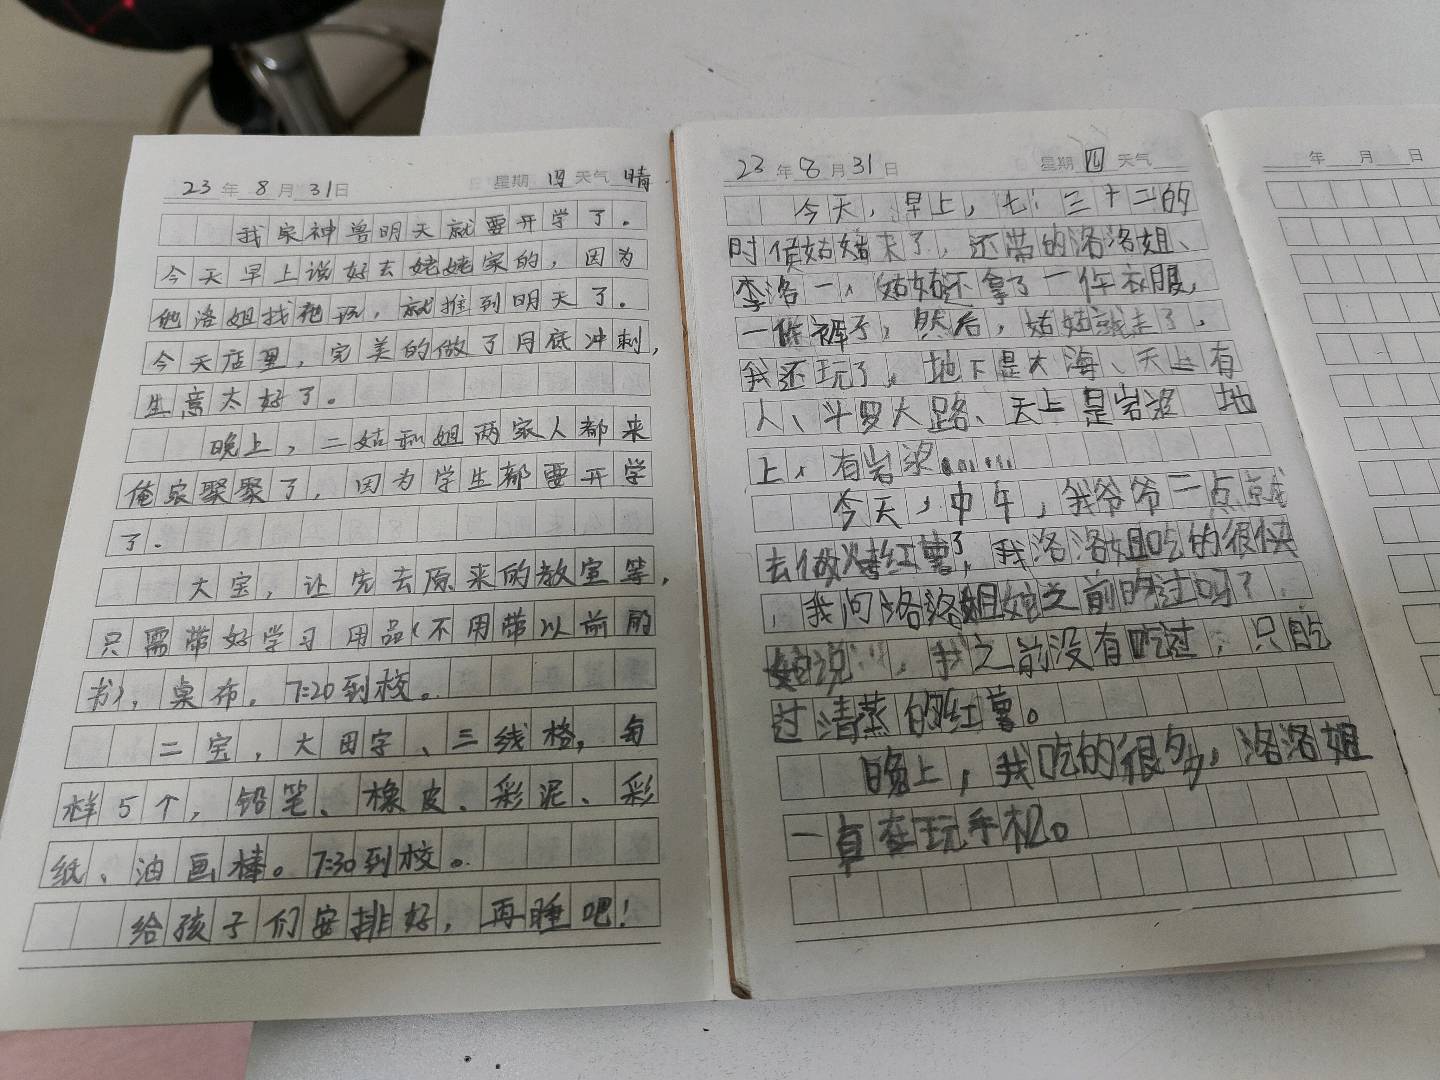 23年 8月 31日 星期 四 天气 晴
我家神兽明天就要开学了。
今天早上说好去姥姥家的，因为
他洛姐找他玩，就推到明天了。
今天店里，完美的做了月底冲刺，
生意太好了。
晚上，二姑和姐两家人都来
俺家聚聚了，因为学生都要开学
了。
大宝，让先去原来的教室等，
只需带好学习用品（不用带以前的
书），桌布。7:20到校。
二宝，大田字、三线格，每
样5个，铅笔、橡皮、彩泥、彩
纸、油画棒。7:30到校。
给孩子们安排好，再睡吧！
23年 8月 31日 星期 四 天气
今天，早上，七：三十二的
时候姑姑来了，还带的洛洛姐、
李洛一，姑姑还拿了一件衣服，
一件裤子，然后，姑姑就走了，
我还玩了，地下是大海、天上有
人、斗罗大路、天上是岩浆 地
上，有岩浆……
今天，中午，我爷爷一点就
去做烤红薯了，我洛洛姐吃的很快
，我问洛洛姐她之前吃过吗？
她说，我之前没有吃过，只吃
过清蒸的红薯。
晚上，我吃的很多，洛洛姐
一直在玩手机。
年 月 日